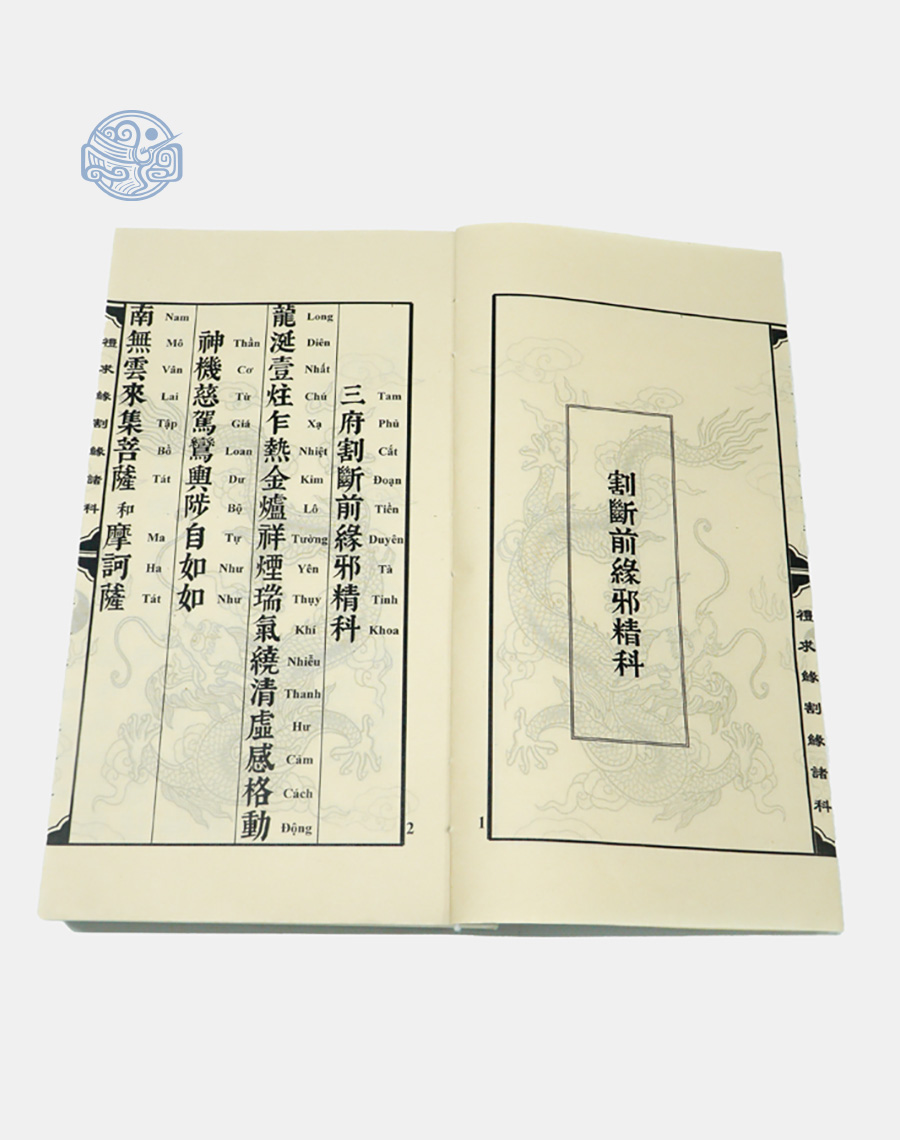 割斷前緣邪精科
禮求緣割緣諸科
1
三府割斷前緣邪精科
Tam Phủ Cắt Đoạn Tiền Duyên Tà Tinh Khoa
龍涎壹炷乍熱金爐祥煙瑞氣繞清虛感格動
Long Diên Nhất Chú Xạ Nhiệt Kim Lô Tường Yên Thụy Khí Nhiễu Thanh Hư Cảm Cách Động
神機慈駕鸞輿陟自如如
Thần Cơ Từ Giá Loan Dư Bộ Tự Như Như
南無雲來集菩薩和摩訶薩
Nam Mô Vân Lai Tập Bồ Tát Ma Ha Tát
禮求緣割緣諸科
2